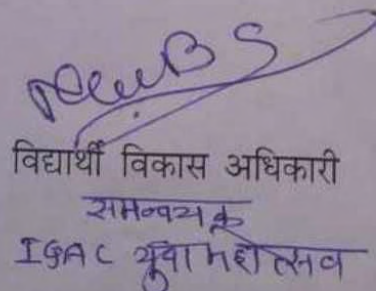 विद्यार्थी विकास अधिकारी
समन्वयक
IGAC युवा महोत्सव